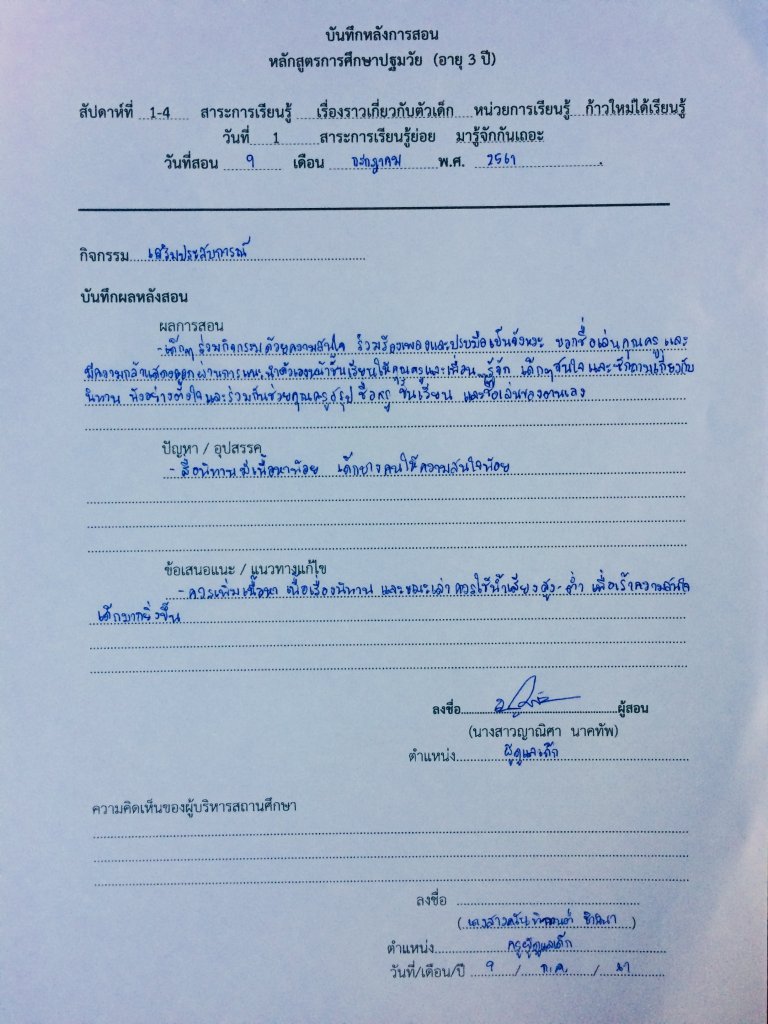 บันทึกหลังการสอน
หลักสูตรการศึกษาปฐมวัย (อายุ 3 ปี)
สัปดาห์ที่ 1-4 สาระการเรียนรู้ เรื่องราวเกี่ยวกับตัวเด็ก หน่วยการเรียนรู้ ก้าวใหม่ได้เรียนรู้
วันที่ 1 สาระการเรียนรู้ย่อย มารู้จักกันเถอะ
วันที่สอน 9 เดือน กรกฎาคม พ.ศ. 2561
กิจกรรม เสริมประสบการณ์
บันทึกผลหลังสอน
ผลการสอน
- เด็กๆ ร่วมกิจกรรมด้วยความสนใจ ร่วมร้องเพลงและปรบมือเป็นจังหวะ บอกชื่อเล่นคุณครู และ
มีความกล้าแสดงออกผ่านการแนะนำตัวเองหน้าชั้นเรียนให้คุณครูและเพื่อนๆรู้จัก เด็กๆสนใจและซักถามเกี่ยวกับ
นิทาน ฟังอย่างตั้งใจและร่วมกันช่วยคุณครูสรุป ชื่อครู ชั้นเรียน และชื่อเล่นของตนเอง
ปัญหา / อุปสรรค
- สื่อนิทานมีเนื้อหาน้อย เด็กบางคนให้ความสนใจน้อย
ข้อเสนอแนะ / แนวทางแก้ไข
- ควรเพิ่มเนื้อหา เนื้อเรื่องนิทาน และขณะเล่า ควรใช้น้ำเสียงสูง-ต่ำ เพื่อเร้าความสนใจ
เด็กมากยิ่งขึ้น
ลงชื่อ ผู้สอน
(นางสาวญาณิศา นาคทัพ)
ตำแหน่ง ผู้ดูแลเด็ก
ความคิดเห็นของผู้บริหารสถานศึกษา
ลงชื่อ
(นางสาว )
ตำแหน่ง ครูผู้ดูแลเด็ก
วันที่/เดือน/ปี 9 / ก.ค. / 61